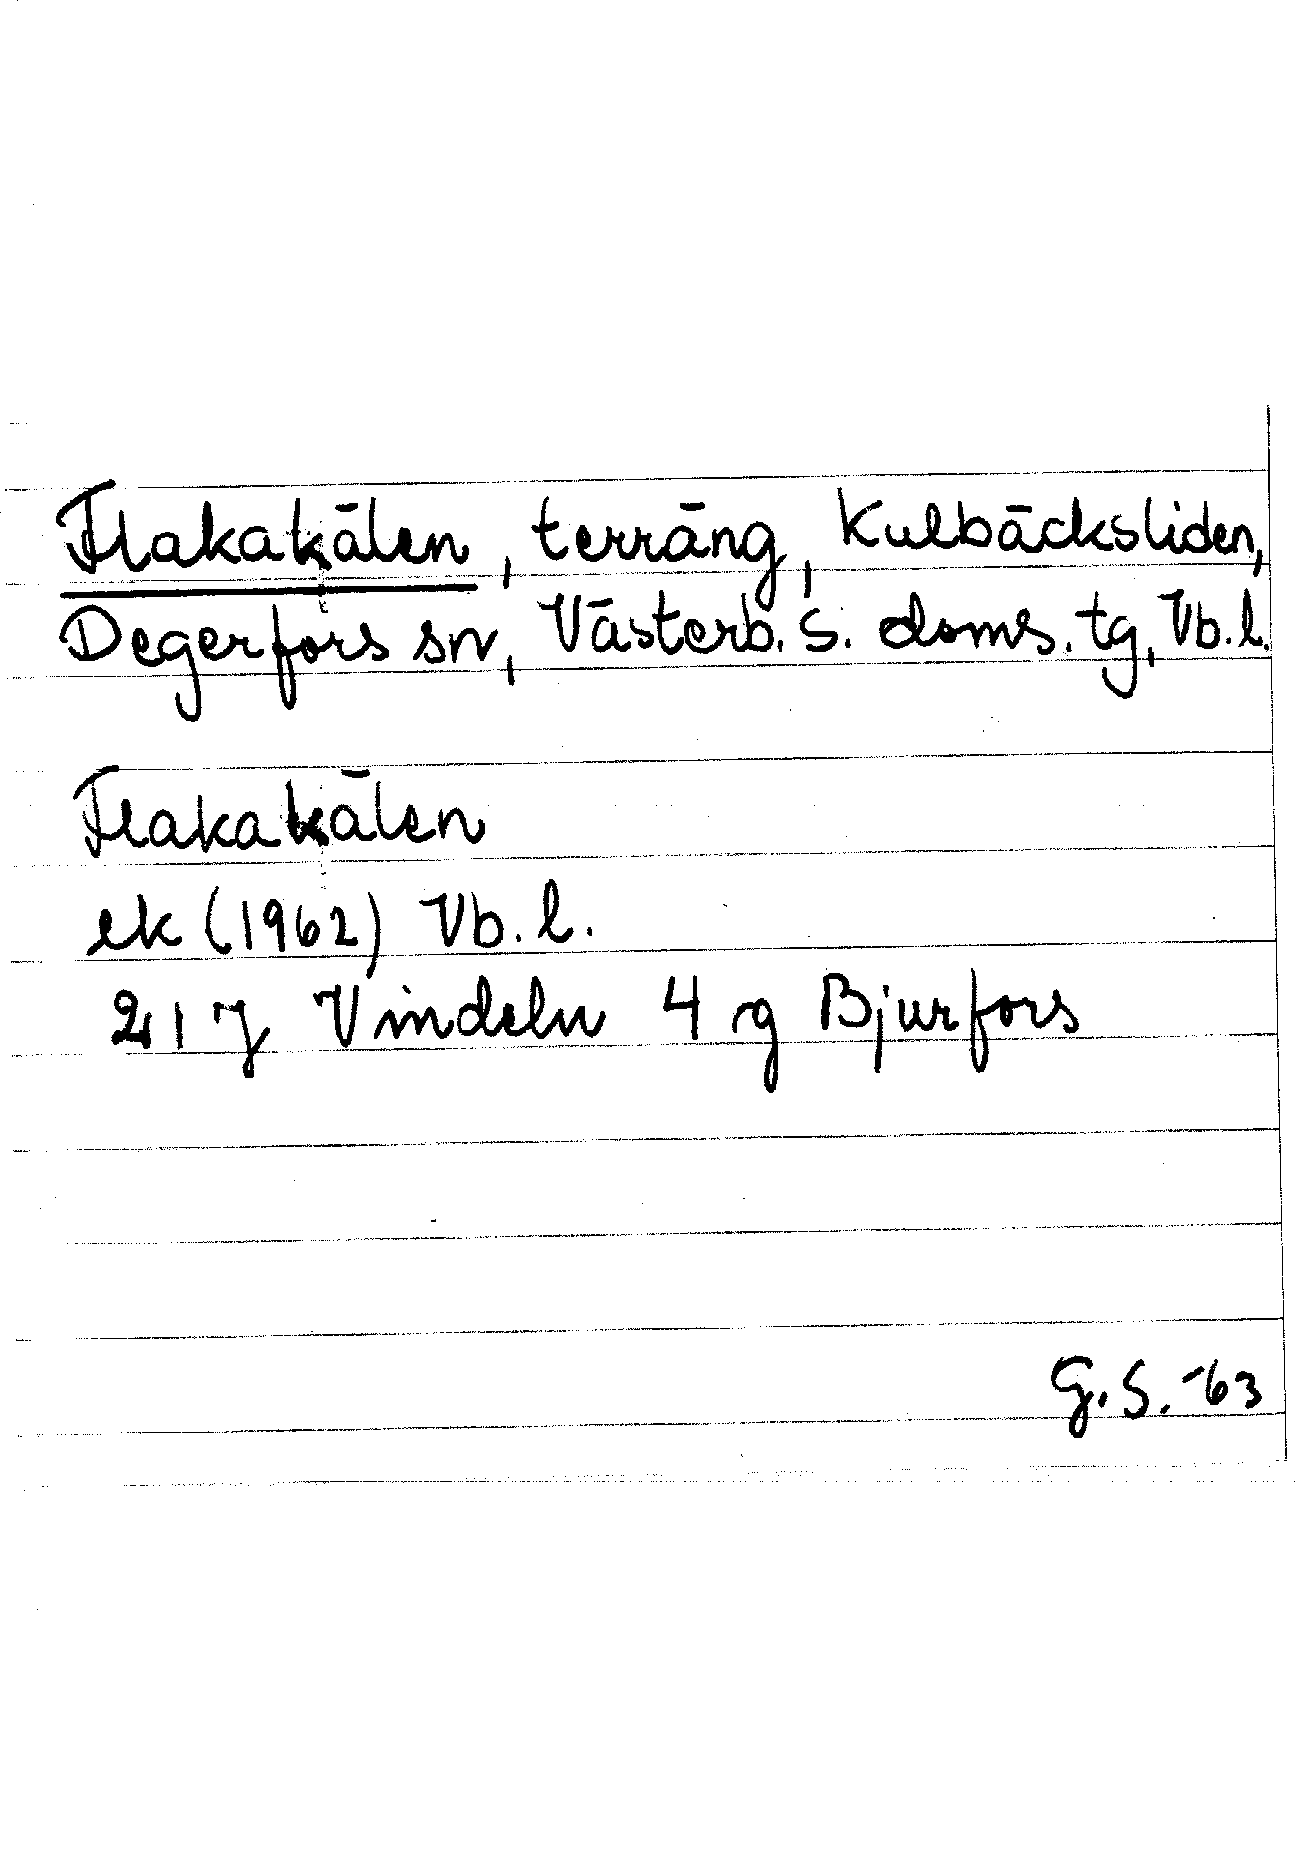 Flakakälen, terräng, Kulbäcksliden,
Degerfors sn, Västerb. s. doms. tg, Vb. l.
Flakakälen
ek (1962) Vb. l.
21 J Vindeln 4 g Bjurfors
G. S. -63